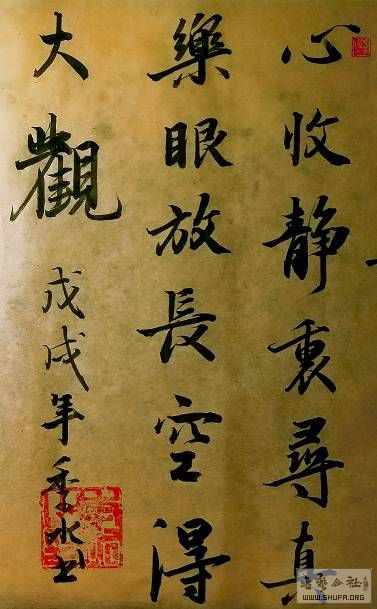 心收静裏尋真
樂眼放長空得
大觀
戊戌年季水书
书法公社
WWW.SHUFA.ORG